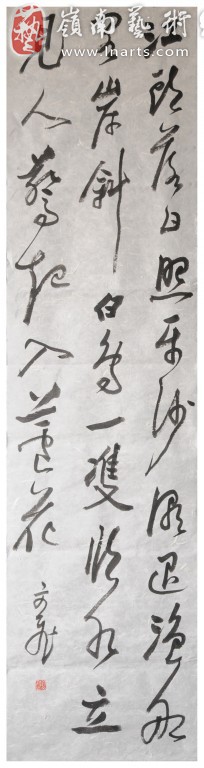 嶺南藝術
www.lnarts.com
江頭落日照平沙潮退漁船
閣岸斜白鳥一雙臨水立
見人驚起入蘆花